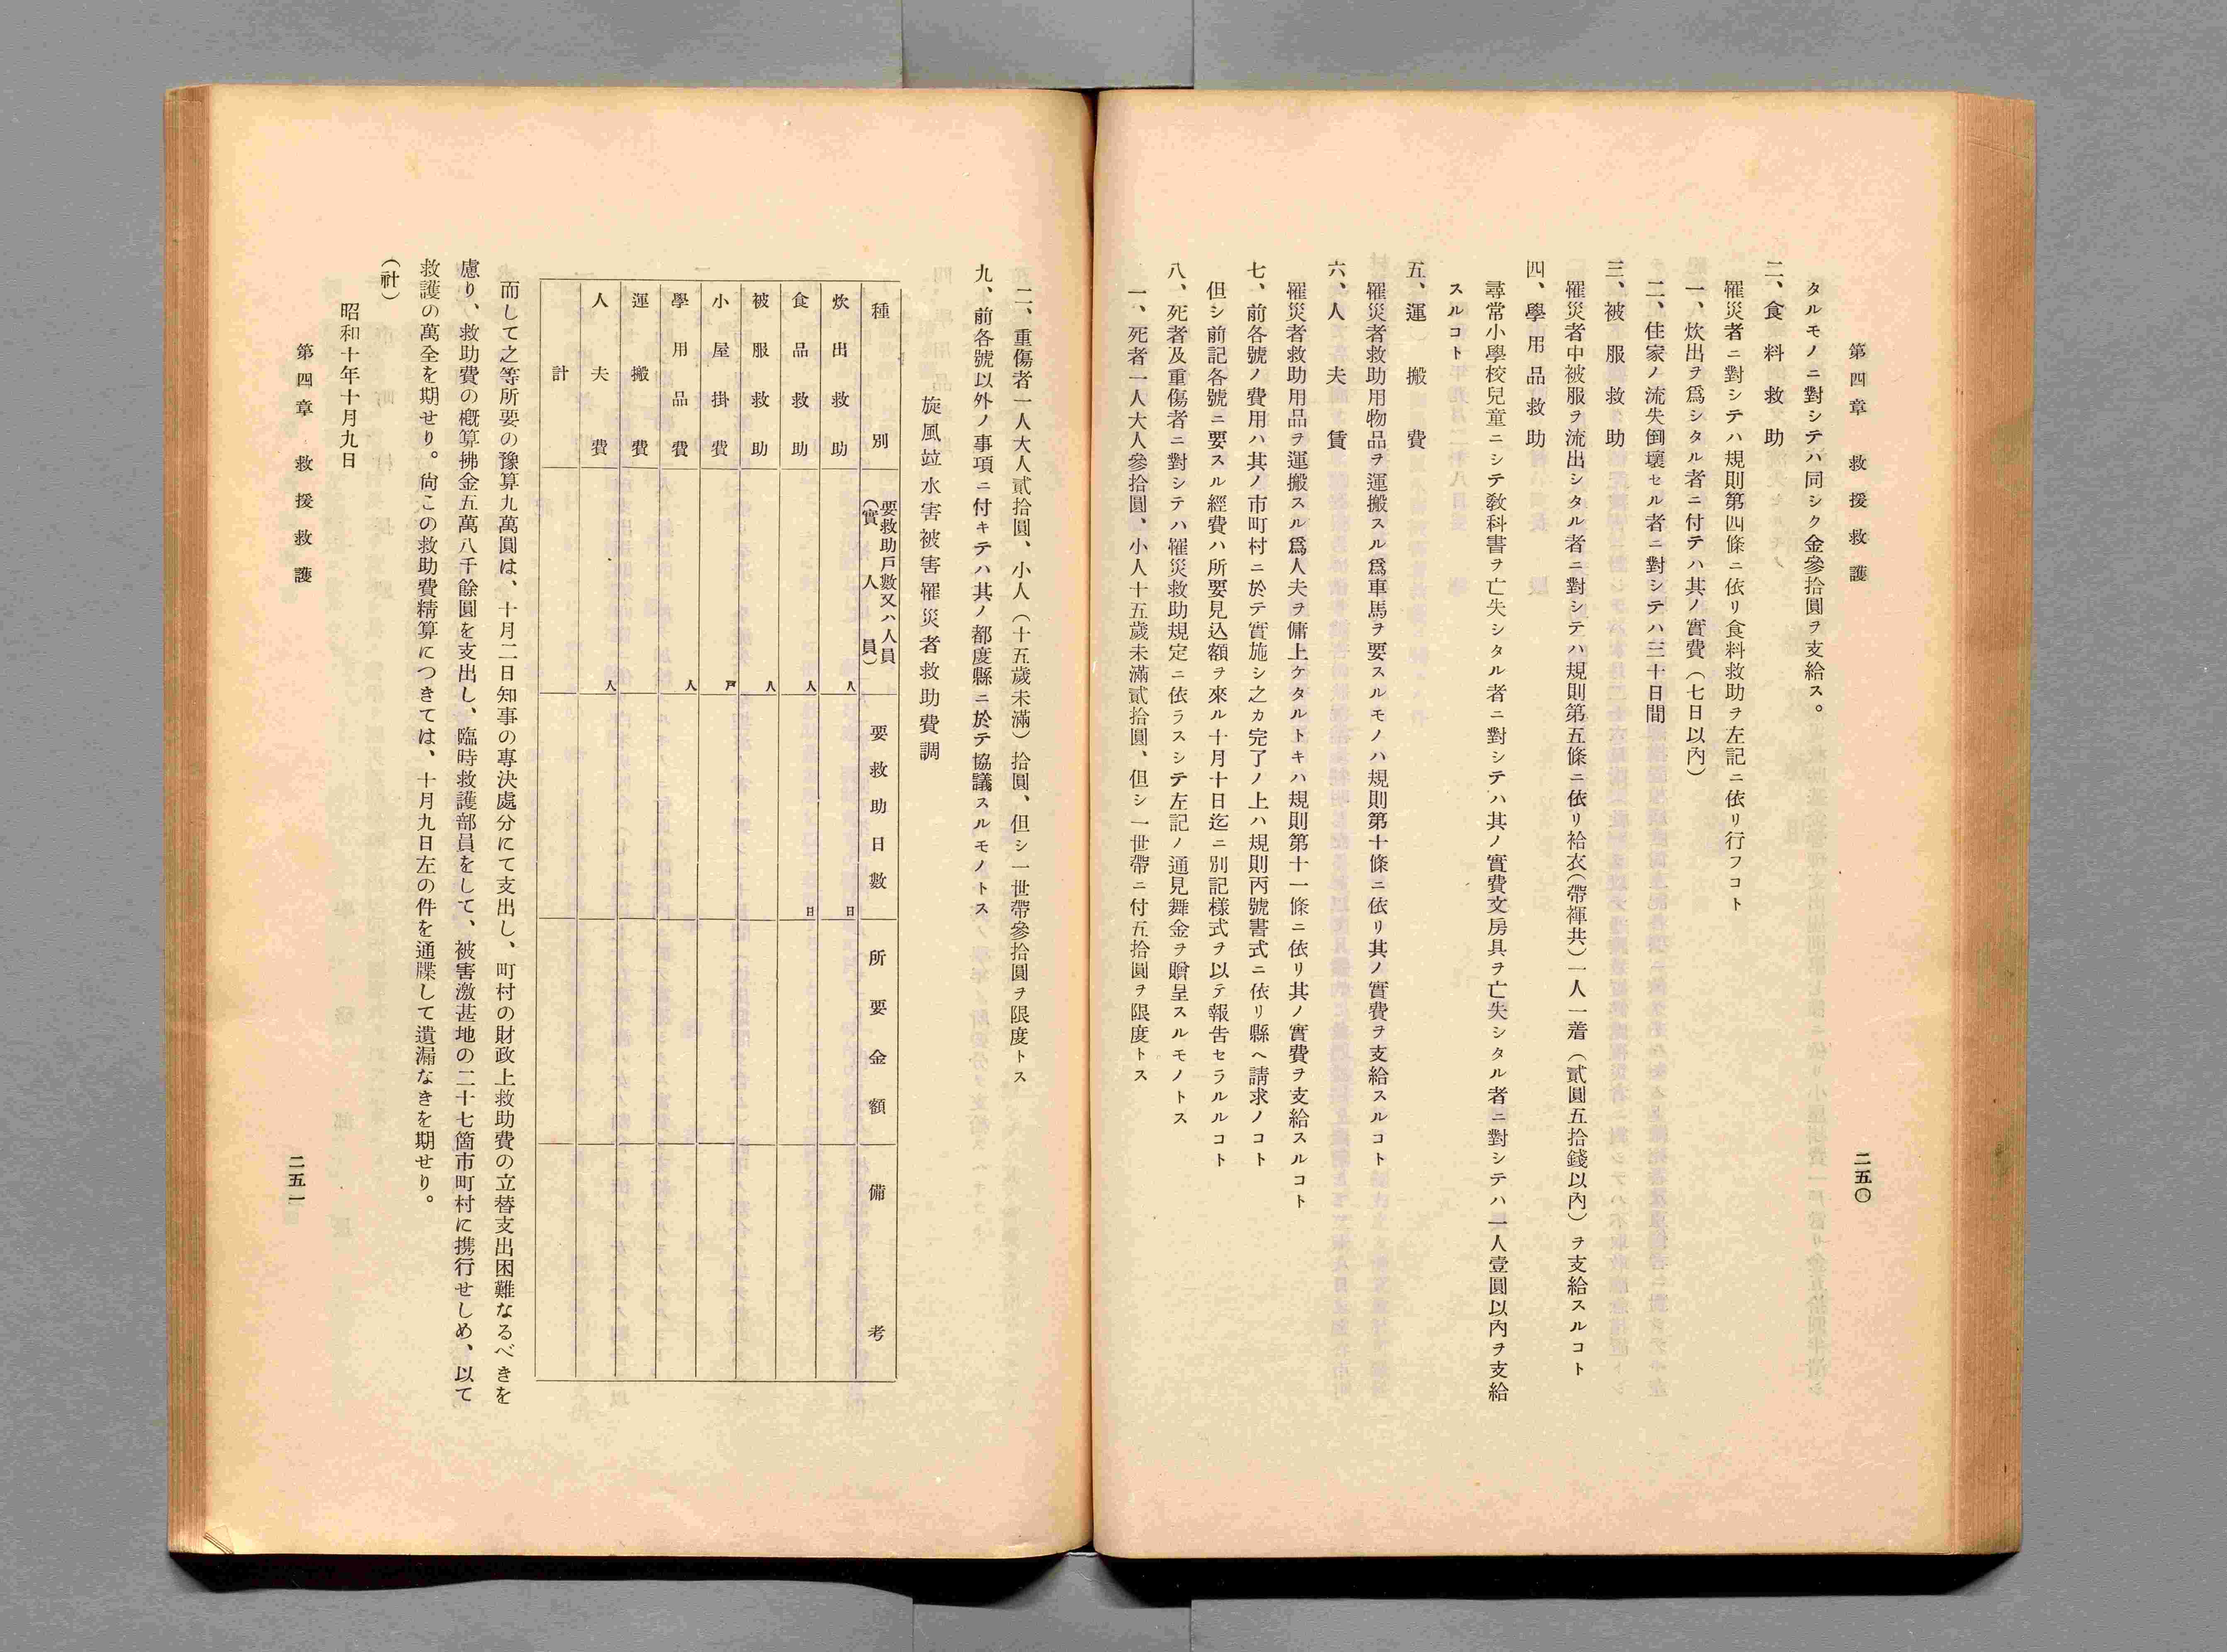 第四章　救援救護
二五〇
タルモノニ對シテハ同シク金參拾圓ヲ支給ス。
二、食料救助
罹災者ニ對シテハ規則第四條ニ依リ食料救助ヲ左記ニ依リ行フコト
一、炊出ヲ爲シタル者ニ付テハ其ノ實費（七日以內）
二、住家ノ流失倒壞セル者ニ對シテハ三十日間
三、被服救助
罹災者中被服ヲ流出シタル者ニ對シテハ規則第五條ニ依リ袷衣（帶褌共）一人一着（貳圓五拾錢以內）ヲ支給スルコト
四、學用品救助
尋常小學校兒童ニシテ敎科書ヲ亡失シタル者ニ對シテハ其ノ實費文房具ヲ亡失シタル者ニ對シテハ一人壹圓以內ヲ支給
スルコト
五、運搬費
罹災者救助用物品ヲ運搬スル爲車馬ヲ要スルモノハ規則第十條ニ依リ其ノ實費ヲ支給スルコト
六、人夫賃
罹災者救助用品ヲ運搬スル爲人夫ヲ傭上ケタルトキハ規則第十一條ニ依リ其ノ實費ヲ支給スルコト
七、前各號ノ費用ハ其ノ市町村ニ於テ實施シ之カ完了ノ上ハ規則丙號書式ニ依リ縣ヘ請求ノコト
但シ前記各號ニ要スル經費ハ所要見込額ヲ來ル十月十日迄ニ別記樣式ヲ以テ報告セラルルコト
八、死者及重傷者ニ對シテハ罹災救助規定ニ依ラスシテ左記ノ通見舞金ヲ贈呈スルモノトス
一、死者一人大人參拾圓、小人十五歲未滿貳拾圓、但シ一世帶ニ付五拾圓ヲ限度トス
二、重傷者一人大人貳拾圓、小人（十五歲未滿）拾圓、但シ一世帶參拾圓ヲ限度トス
九、前各號以外ノ事項ニ付キテハ其ノ都度縣ニ於テ協議スルモノトス
旋風竝水害被害罹災者救助費調
種別
要救助戶數又ハ人員
（實人員）
要救助日數
所要金額
備考
炊出救助
人
日
食品救助
人
日
被服救助
人
小屋掛費
戶
學用品費
人
運搬費
人夫費
人
計
而して之等所要の豫算九萬圓は、十月二日知事の專決處分にて支出し、町村の財政上救助費の立替支出困難なるべきを
慮り、救助費の槪算拂金五萬八千餘圓を支出し、臨時救護部員をして、被害激甚地の二十七箇市町村に携行せしめ、以て
救護の萬全を期せり。尙この救助費精算につきては、十月九日左の件を通牒して遺漏なきを期せり。
（社）
昭和十年十月九日
第四章　救援救護
二五一